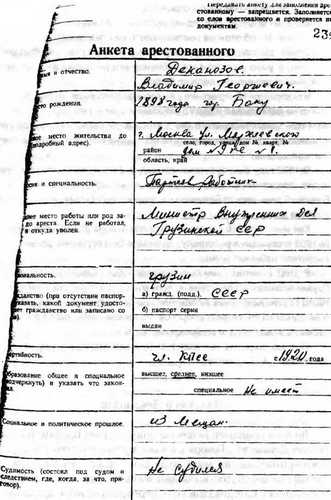 Передавать анкету для заполнения аре-
стованному — запрещается. Заполняется
со слов арестованного и проверяется п
документам.
239
Анкета арестованного
и отчество.
Деканозов
Владимир Георгиевич.
рождения.
1898 года гор. Баку
место жительства до
подробный адрес).
г. Москва ул.
село, город, улица, дом №, кварт. №
район дом №
область, край
и специальность.
Партев работник
место работы или род за-
до ареста. Если не работал,
откуда уволен.
Министр Внутренних Дел
Грузинской ССР
грузин
(при отсутствии паспор-
указать, какой документ удосто-
ет гражданство или записано со
а) гражд. (подд.). СССР
б) паспорт серия
выдан
чл. КПСС с 1920 года
образование общее и специальное
подчеркнуть) и указать что закон-
высшее, среднее, низшее
специальное Не имеет
Социальное и политическое прошлое.
из Мещан.
Судимость (состоял под судом и
следствием, где, когда, за что, при-
говор).
Не судился